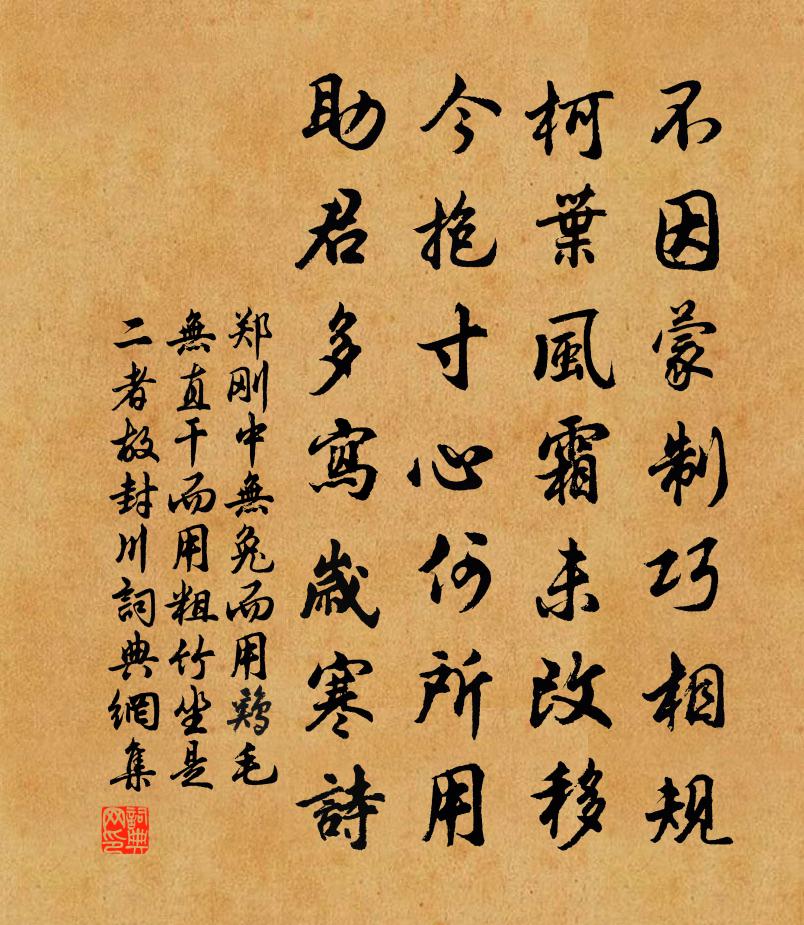 不因蒙制巧相规
柯葉風霜未改移
今抱寸心何所用
助君多寫歲寒詩
郑刚中無兔而用鷄毛
無直干而用粗竹坐是
二者故封川詞典網集
詞典网印